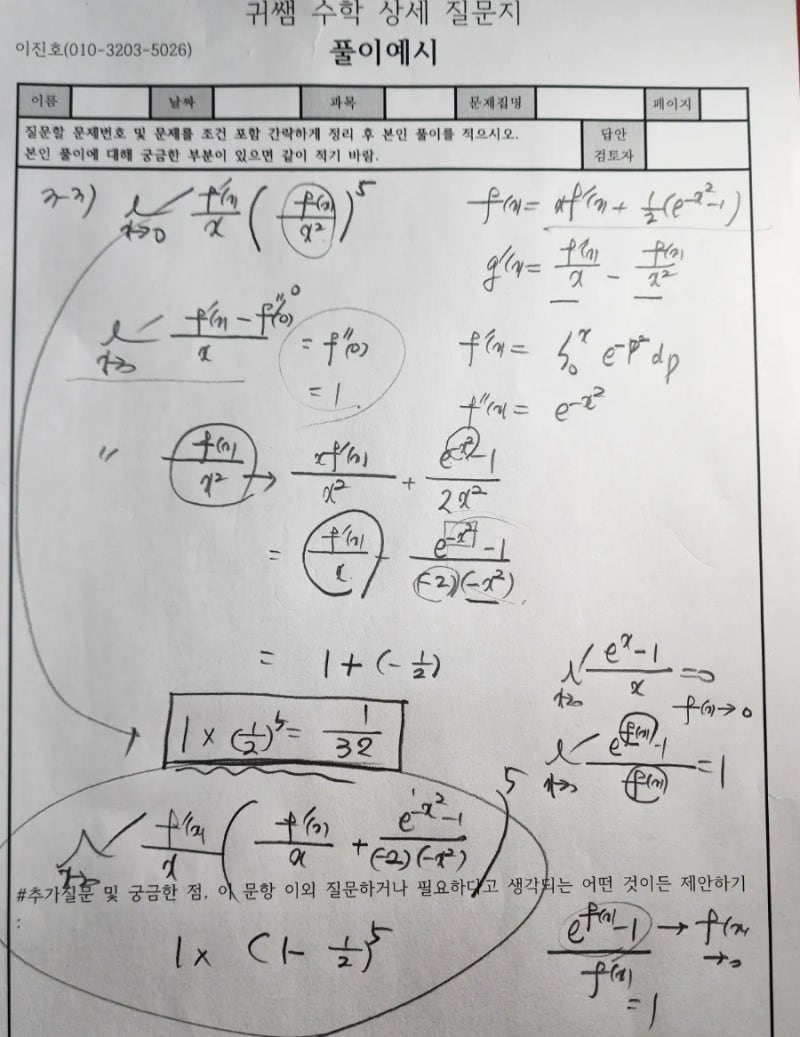 귀쌤 수학 상세 질문지
이진호(010-3203-5026)
풀이예시
이름 날짜 과목 문제집명 페이지
질문할 문제번호 및 문제를 조건 포함 간략하게 정리 후 본인 풀이를 적으시오.
본인 풀이에 대해 궁금한 부분이 있으면 같이 적기 바람.
답안
검토자
lim x→0 f'(x)/x (f(x)/x²)⁵
f(x) = xf'(x) + 1/2(e^-x²-1)
g'(x) = f'(x)/x - f(x)/x²
lim x→0 f'(x) - f'(0)/x = f''(0)
= 1
f'(x) = ∫₀ˣ e^-p² dp
f''(x) = e^-x²
" f(x)/x² → xf'(x)/x² + e^-x²-1/2x²
= f'(x)/x + e^-x²-1/(-2)(-x²)
= 1 + (-1/2)
lim x→0 e^x-1/x
f(x)→0
1 × (1/2)⁵ = 1/32
lim x→0 e^f(x)-1/f(x) = 1
lim x→0 f'(x)/x (f'(x)/x + e^-x²-1/(-2)(-x²))⁵
#추가질문 및 궁금한 점, 이 문항 이외 질문하거나 필요하다고 생각되는 어떤 것이든 제안하기
:
1 × (1 - 1/2)⁵
e^f(x)-1/f(x) → f(x) →0
= 1